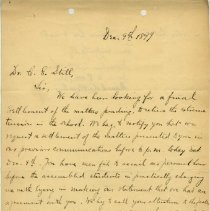 Dec. 9th 1899
Dr. C. E. Still,
Sir,
We have been looking for a final
settlement of the matters pending, relative to the
in the school. We beg to notify you that we
request a settlement of the matters presented you in
our previous communication before 6 p.m. today
Dec. 9th. You have seen fit to assail us personally
before the assembled students in practically charging
us with in making our statement that we had an
agreement with you. We beg to call your attention to